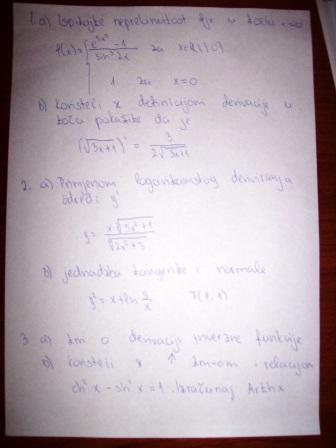 1. a) Ispitajte neprekinutost fje u točki x=0
f(x)= { e^{5x²} - 1 / sin² 2x za x∈R\{0}
1 za x=0
b) koristeći x definicijom derivacije u
točki pokažite da je
(√3x+1)' = 3 / 2√3x+1
2. a) Primjenom logaritamskog deriviranja
odredi y'
y= x √5x²+1 / √2x²+3
b) jednadžba tangente i normale
y² = x+ln y/x T(1,1)
3 a) tm o derivaciji inverzne funkcije
b) koristeći x ↑ tm-om i relacijom
ch²x - sh²x = 1. Izračunaj Arthx